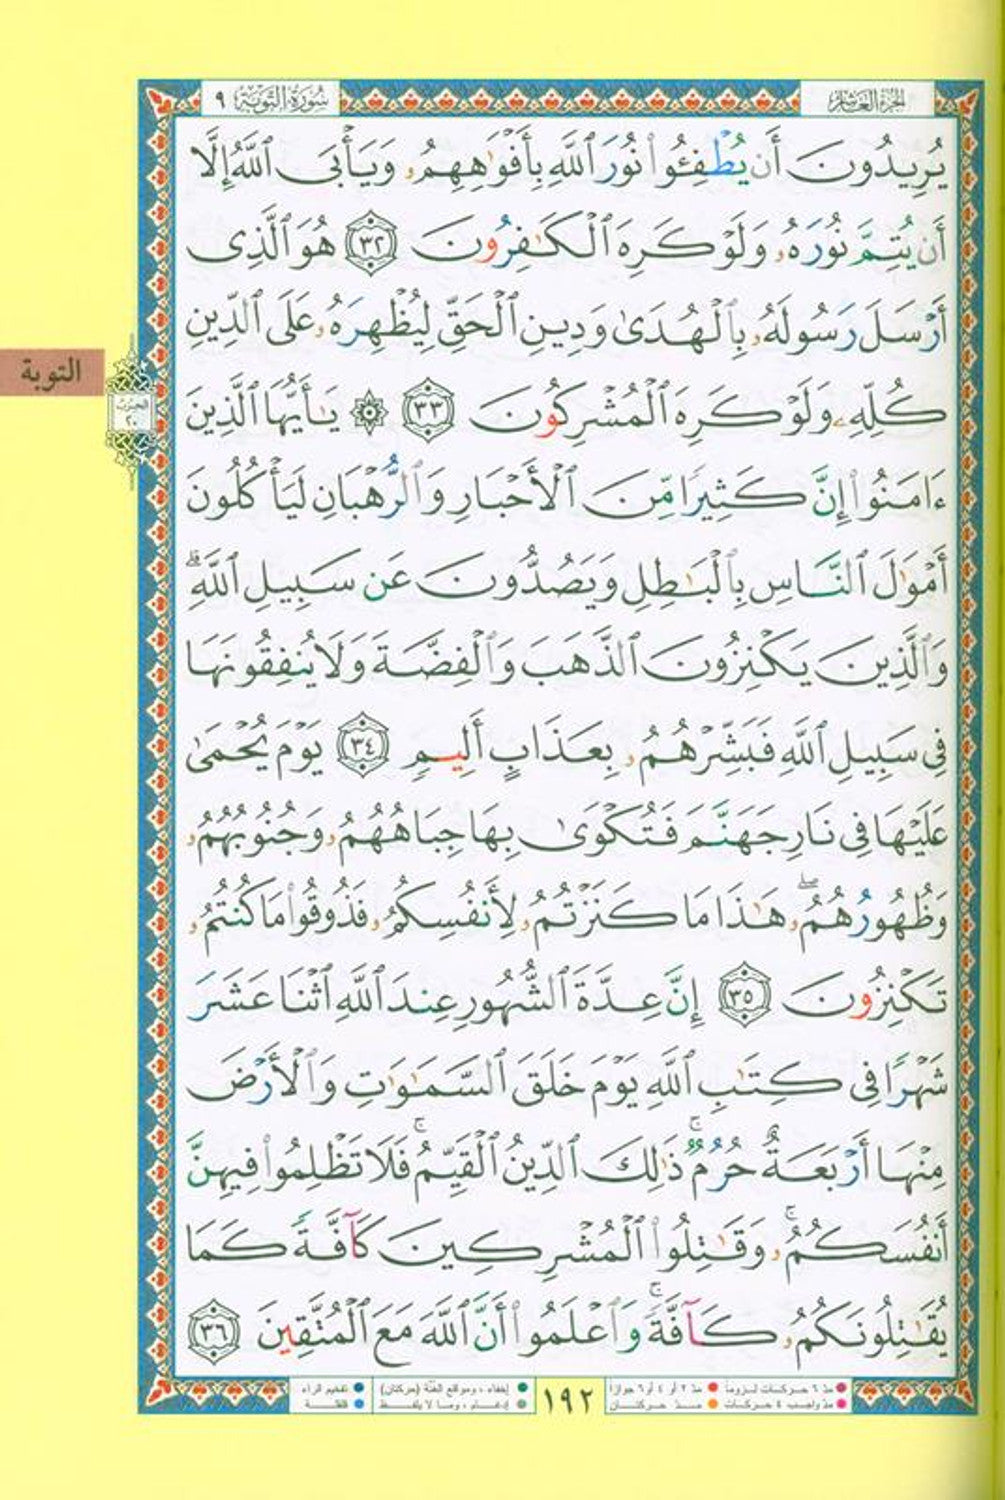 سُورَةُ التَّوْبَة ٩
الجزء العاشر
يُرِيدُونَ أَن يُطْفِـُٔوا۟ نُورَ ٱللَّهِ بِأَفْوَٰهِهِمُۥ وَيَأْبَى ٱللَّهُ إِلَّآ
أَن يُتِمَّ نُورَهُۥ وَلَوْ كَرِهَ ٱلْكَـٰفِرُونَ ٣٢ هُوَ ٱلَّذِى
أَرْسَلَ رَسُولَهُۥ بِٱلْهُدَىٰ وَدِينِ ٱلْحَقِّ لِيُظْهِرَهُۥ عَلَى ٱلدِّينِ
كُلِّهِۦ وَلَوْ كَرِهَ ٱلْمُشْرِكُونَ ٣٣ ۞ يَـٰٓأَيُّهَا ٱلَّذِينَ
ءَامَنُوا۟ إِنَّ كَثِيرًا مِّنَ ٱلْأَحْبَارِ وَٱلرُّهْبَانِ لَيَأْكُلُونَ
أَمْوَٰلَ ٱلنَّاسِ بِٱلْبَـٰطِلِ وَيَصُدُّونَ عَن سَبِيلِ ٱللَّهِ ۗ
وَٱلَّذِينَ يَكْنِزُونَ ٱلذَّهَبَ وَٱلْفِضَّةَ وَلَا يُنفِقُونَهَا
فِى سَبِيلِ ٱللَّهِ فَبَشِّرْهُمُۥ بِعَذَابٍ أَلِيمٍ ٣٤ يَوْمَ يُحْمَىٰ
عَلَيْهَا فِى نَارِ جَهَنَّمَ فَتُكْوَىٰ بِهَا جِبَاهُهُمُۥ وَجُنُوبُهُمُۥ
وَظُهُورُهُمُۥ ۖ هَـٰذَا مَا كَنَزْتُمُۥ لِأَنفُسِكُمُۥ فَذُوقُوا۟ مَا كُنتُمُۥ
تَكْنِزُونَ ٣٥ إِنَّ عِدَّةَ ٱلشُّهُورِ عِندَ ٱللَّهِ ٱثْنَا عَشَرَ
شَهْرًا فِى كِتَـٰبِ ٱللَّهِ يَوْمَ خَلَقَ ٱلسَّمَـٰوَٰتِ وَٱلْأَرْضَ
مِنْهَآ أَرْبَعَةٌ حُرُمٌ ۚ ذَٰلِكَ ٱلدِّينُ ٱلْقَيِّمُ ۚ فَلَا تَظْلِمُوا۟ فِيهِنَّ
أَنفُسَكُمُۥ ۚ وَقَـٰتِلُوا۟ ٱلْمُشْرِكِينَ كَآفَّةً كَمَا
يُقَـٰتِلُونَكُمُۥ كَآفَّةً ۚ وَٱعْلَمُوٓا۟ أَنَّ ٱللَّهَ مَعَ ٱلْمُتَّقِينَ ٣٦
التوبة
الحزب ٢٠
مدّ ٦ حركات لزوماً ● مدّ ٢ أو ٤ أو ٦ جوازاً
مدّ واجب ٤ حركات ● مدّ حركتان
١٩٢
إخفاء، ومواقع الغنّة (حركتان) ● تفخيم الراء
إدغام، وما لا يلفظ ● قلقلة